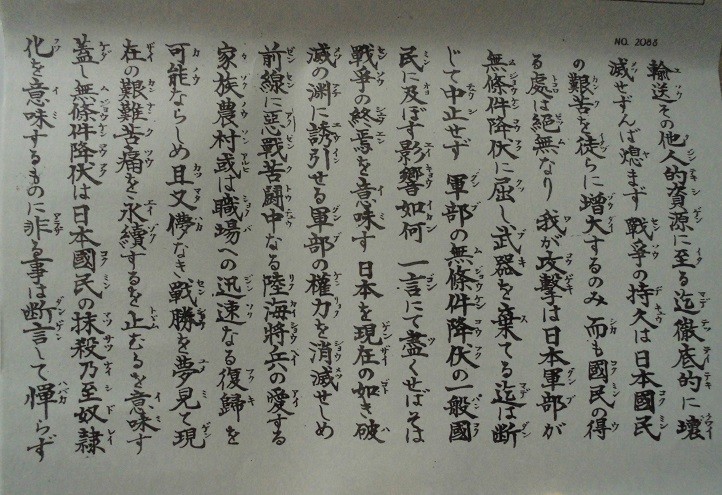 NO. 2088
輸送その他人的資源に至る迄徹底的に壊
滅せずんば熄まず 戰爭の持久は日本國民
の艱苦を徒らに增大するのみ 而も國民の得
る處は絕無なり 我が攻擊は日本軍部が
無條件降伏に屈し武器を棄てる迄は斷
じて中止せず 軍部の無條件降伏の一般國
民に及ぼす影響如何 一言にて盡くせばそは
戰爭の終焉を意味す 日本を現在の如き破
滅の淵に誘引せる軍部の權力を消滅せしめ
前線に惡戰苦鬪中なる陸海將兵の愛する
家族農村或は職場への迅速なる復歸を
可能ならしめ且又儚なき戰勝を夢見て現
在の艱難苦痛を永續するを止むるを意味す
蓋し無條件降伏は日本國民の抹殺乃至奴隸
化を意味するものに非る事は斷言して憚らず